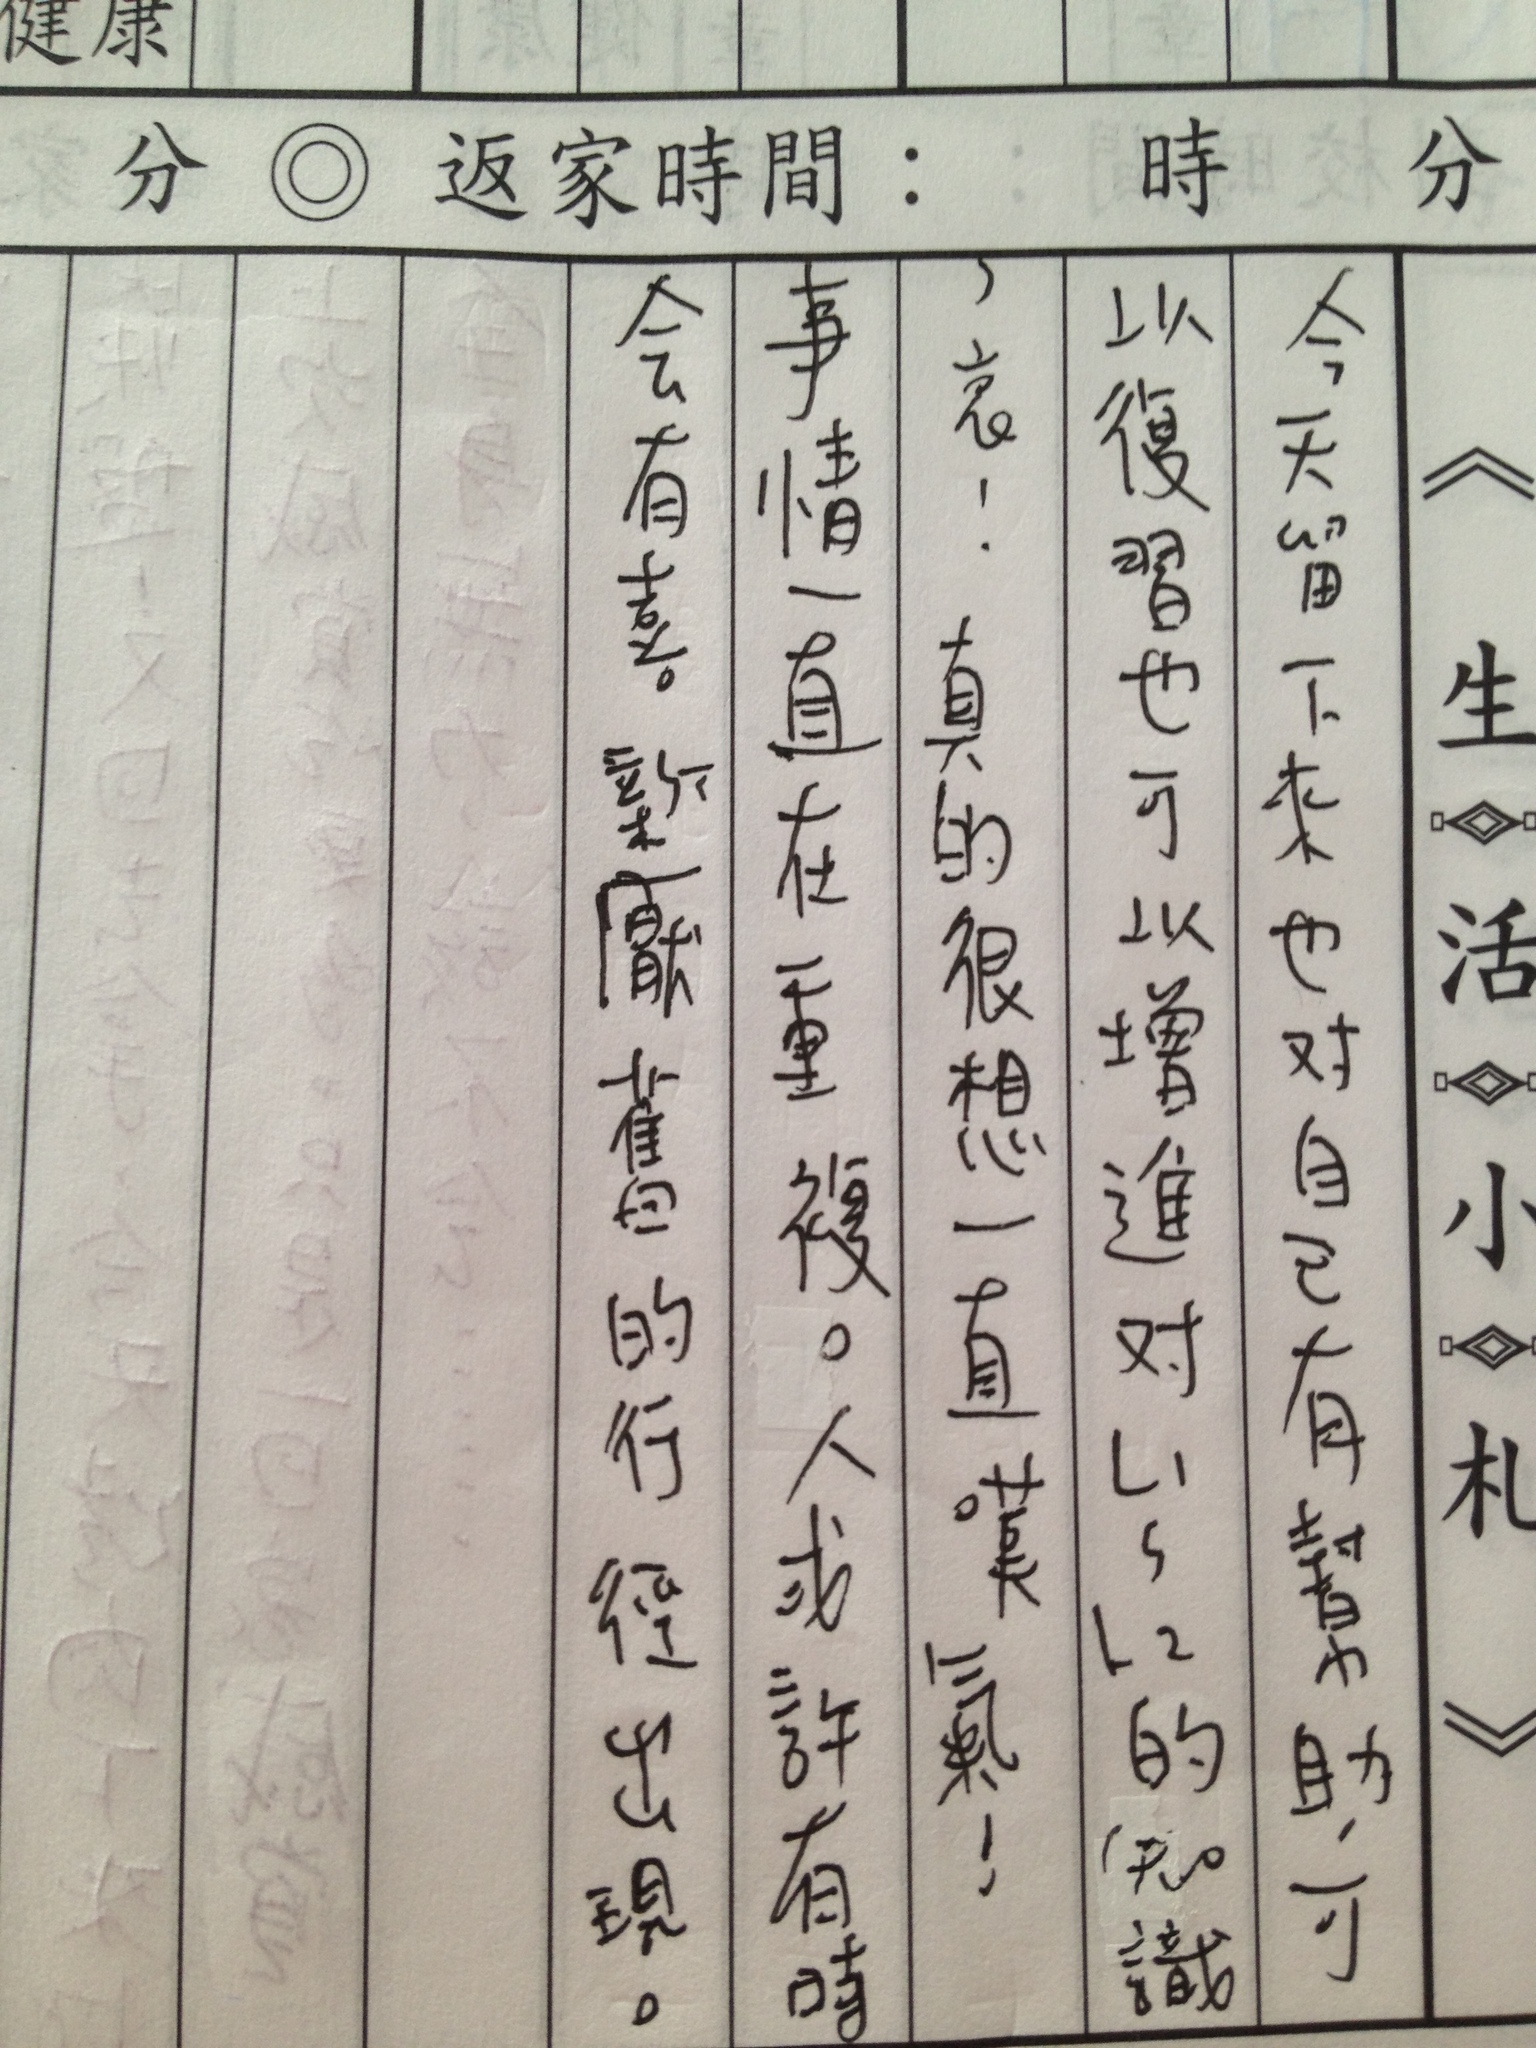 健康
分◎返家時間：　時　分
《生活小札》
今天留下來也对自己有幫助，可
以復習也可以增進对的知識
，哀！真的很想一直嘆氣！
事情一直在重複。人或許有時
会有喜。新厭舊的行徑出現。